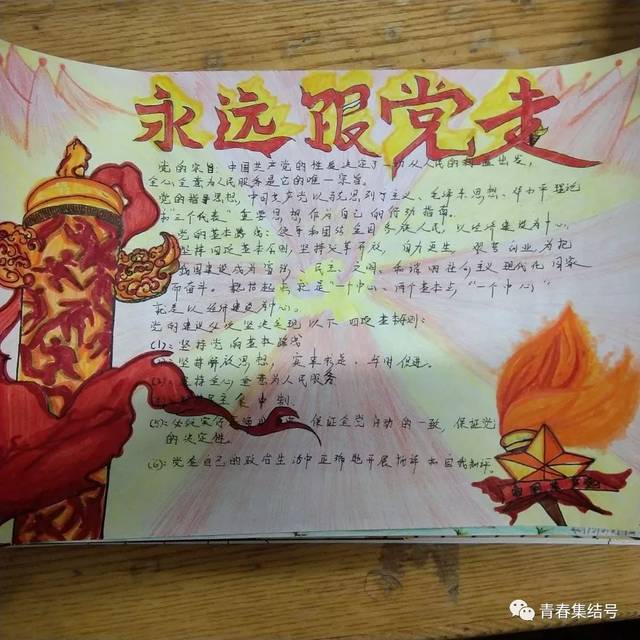 永远跟党走
党的宗旨：中国共产党的性质决定了一切从人民的利益出发，
全心全意为人民服务是它的唯一宗旨。
党的指导思想，中国共产党以马克思列宁主义、毛泽东思想、邓小平理论
和"三个代表"重要思想作为自己的行动指南。
党的基本路线：领导和团结全国各族人民，以经济建设为中心，
坚持四项基本原则，坚持改革开放，自力更生 艰苦创业，为把
我国建设成为富强、民主、文明、和谐的社会主义现代化国家
而奋斗。 是"一个中心、两个基本点，"一个中心"
就是以经济建设为中心。
党的建设必须坚决实现以下四项基本
(1)：坚持党的基本路线
坚持解放思想，实事求是、与时俱进。
坚持全心全意为人民服务
民主集中制
(5)： 保证全党行动的一致，保证党
的决定性
(6)：党在自己的政治生活中正确地开展批评和自我批评。
青春集结号